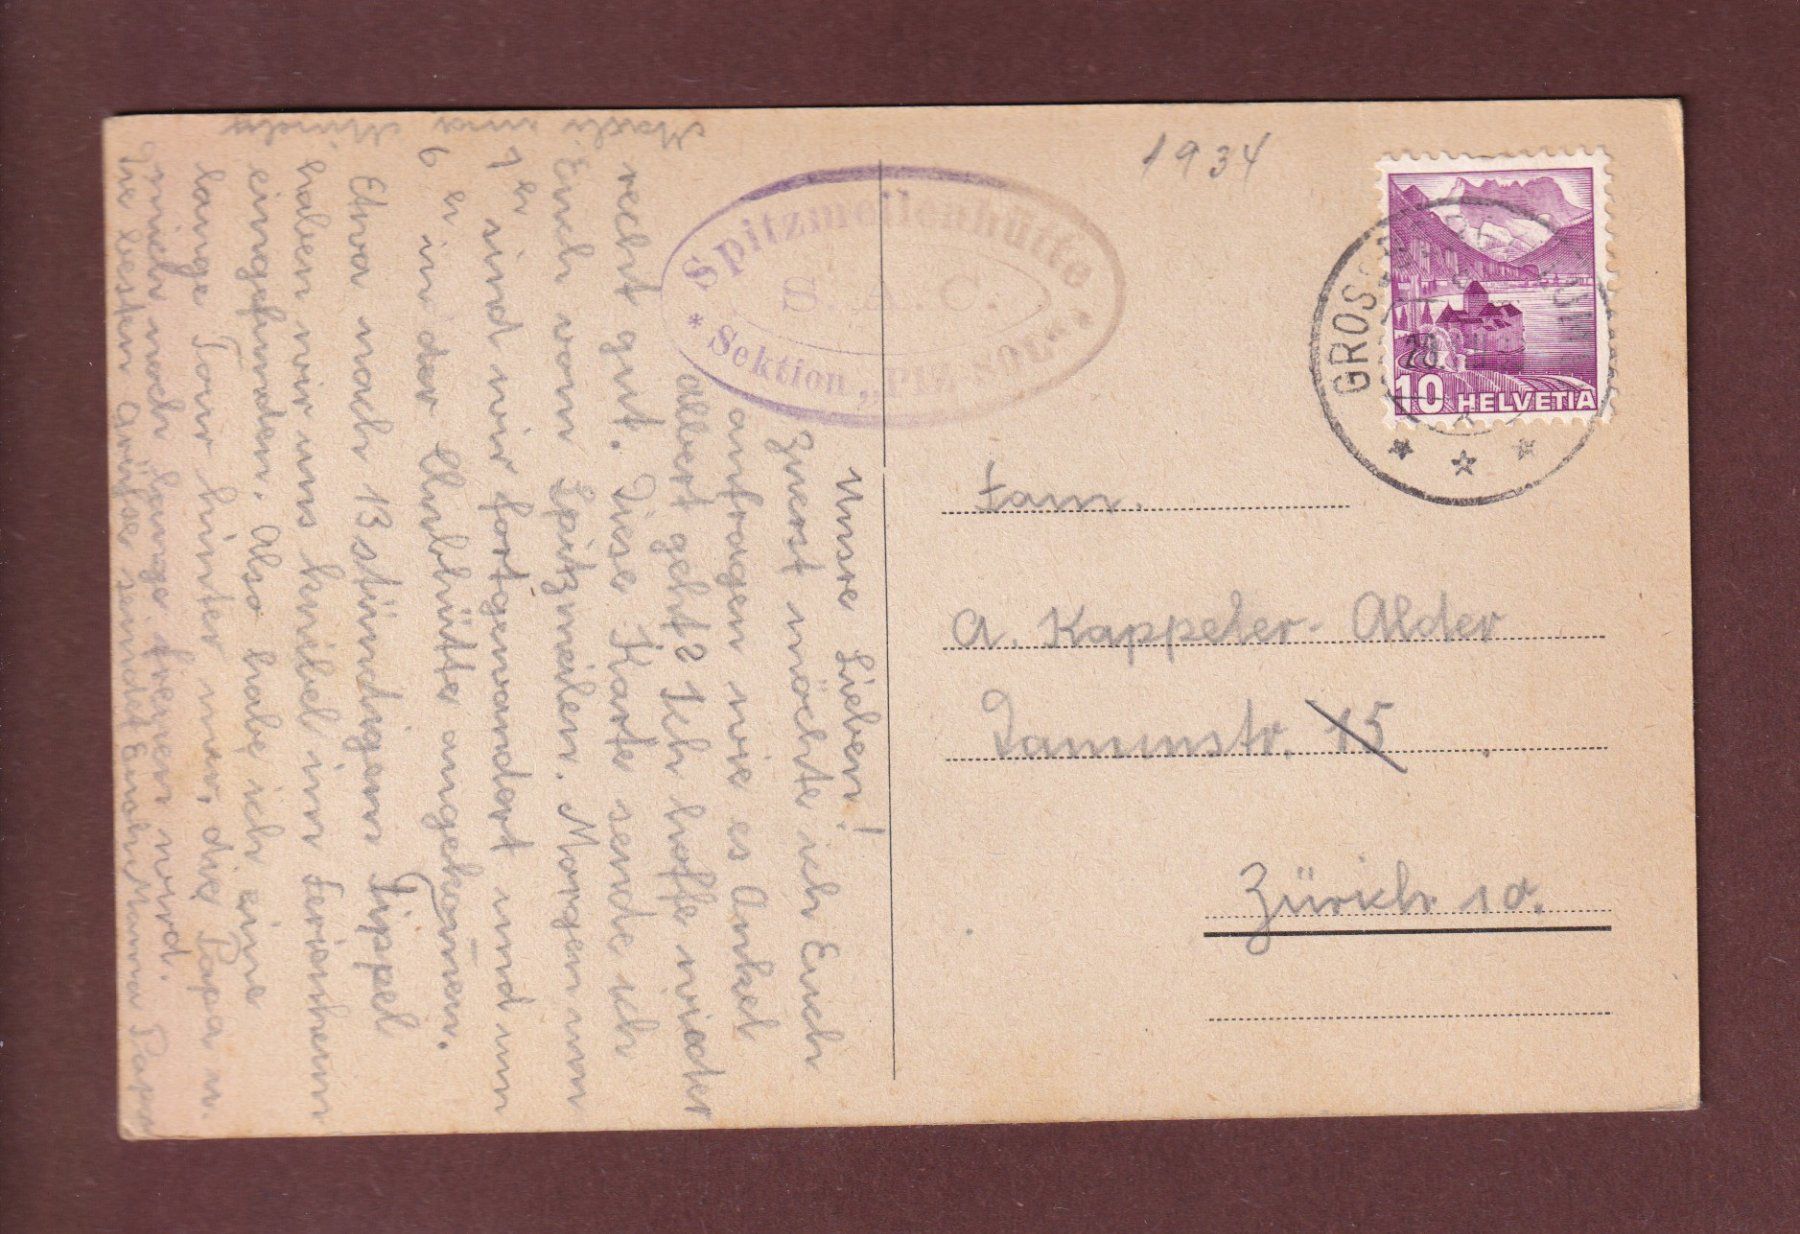 1934
Spitzmeilenhütte
S. A. C.
* Sektion „PIZ SOL“ *
GROSS
10 HELVETIA
Fam.
A. Kappeler-Alder
Dammstr. 15
Zürich 10.
Unsre Lieben!
Zuerst möchte ich Euch
anfragen wie es Ankel
Albert geht? Ich hoffe wieder
recht gut. Diese Karte sende ich
Euch vom Spitzmeilen. Morgen um
1 sind wir fortgewandert und um
6 in der Clubhütte angekom̄en.
Etwa nach 13 stündigem Tippel
haben wir uns knübel im Ferienheim
eingefunden. Also habe ich eine
lange Tour hinter mir, die Papa u.
mich noch lange freuen wird.
Die besten Grüsse sendet Euch Mama Papa